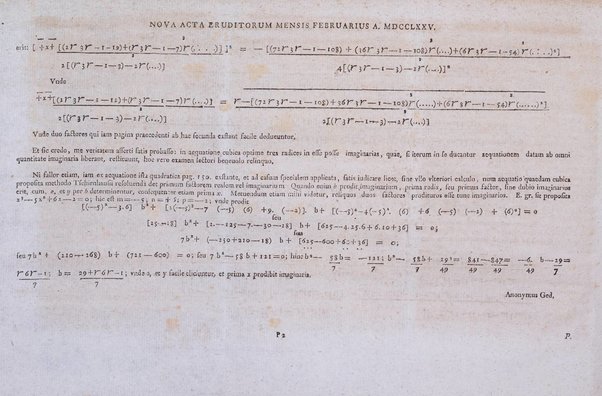 NOVA ACTA ERUDITORUM MENSIS FEBRUARIUS A. MDCCLXXV.
erit: [ +x+ [(2r3r−1−12)+(r3r−1−7)r(...)] ]² = − [(72r3r−1−108) + (36r3r−1−108)r(...)+(6r3r−1−54)r(...)²]
2[(r3r−1−3)−2r(...)] 4[(r3r−1−3)−2r(...)]²
Vnde
+x+[(2r3r−1−12)+(r3r−1−7)r(...)] = r−[(72r3r−1−108)+36r3r−1−108)r(.....)+(6r3r−1−54)r(.....)²]
2[(r3r−1−3)−2r(...)] 2[(r3r−1−3)−2r(...)]
Vnde duo factores qui iam pagina praecedenti ab hac secunda extant facile deducuntur.
Et sic credo, me veritatem asserti satis probasse: in aequatione cubica optime tres radices in esse posse imaginarias, quae, si iterum in se ducantur aequationem datam ab omni
quantitate imaginaria liberare, restituunt, hoc vero examen factori benevolo relinquo,
Ni fallor etiam, iam ex aequatione ista quadratica pag. 150. exstante, et ad casum specialem applicata, satis iudicare licet, sine vllo vlteriori calculo, num aequatio quaedam cubica
proposita methodo Tschirnhausii resoluenda det primum factorem realem vel imaginarium. Quando enim b prodit imaginarium, prima radix, seu primus factor, sine dubio imaginarius
erit, cum, a, et y per b determinontur, consequenter etiam prima x. Metuendum etiam mihi videtur, reliquos duos factores prodituros esse tunc imaginarios. E. gr. sit proposita
x³−5x²+6x−2=0; hic est m=−5; n=+6; p=−2; vnde prodit
[(−5)²−3.6] b² + [2(−5)³−7 (−5) (6) +9. (−2)] b+ [(−5)⁴−4(−5)². (6) +6 (−5) (−2) + (6)²] = 0
seu
[25−18]b² + [2.−125−7.−30−18] b+ [625−4.25.6+6.10+36] = 0;
seu
7b² + (−250+210−18) b+ [625−600+60+36] = 0;
seu 7b² + (210−268) b+ (721−600) = 0; seu 7b²−58b+121=0; hinc b²− 58b = −121; b²− 58b + 29² = 841−847 = −6. b−29 =
7 7 7 49 49 49 7
r6r−1; b= 29+r6r−1; vnde a, et y facile eliciuntur, et prima x prodibit imaginaria.
7 7
Anonymus Ged,
P 2
P.